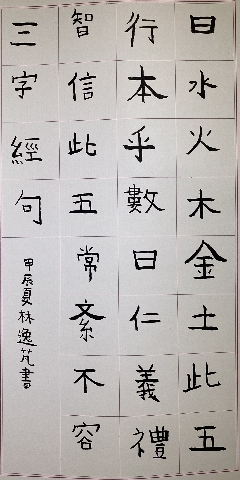 曰水火木金土此五
行本乎數曰仁義禮
智信此五常紊不容
三字經句
甲辰夏林逸芃書